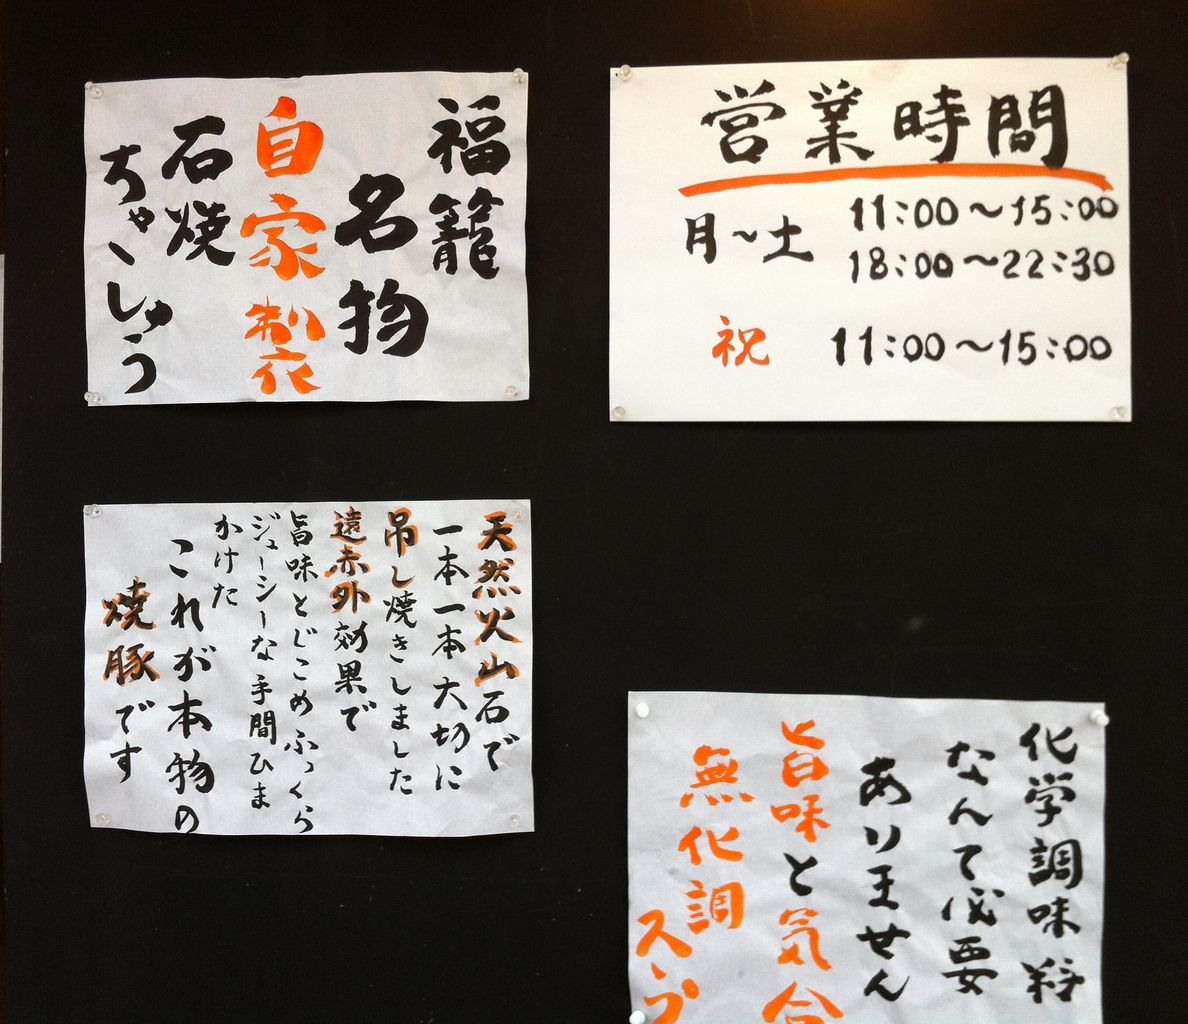 福籠
名物
自家製
石焼
ちゃーしゅう
営業時間
月～土 11:00～15:00
18:00～22:30
祝 11:00～15:00
天然火山石で
一本一本大切に
吊し焼きしました
遠赤外効果で
旨味とじこめふっくら
ジューシーな手間ひま
かけた
これが本物の
焼豚です
化学調味料
なんて必要
ありません
旨味と気合
無化調
スープ